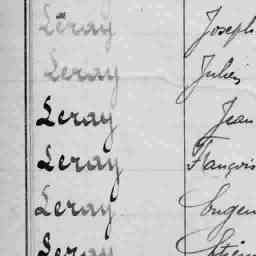 Leray Joseph
Leray Jules
Leray Jean
Leray François
Leray Eugen
Leray